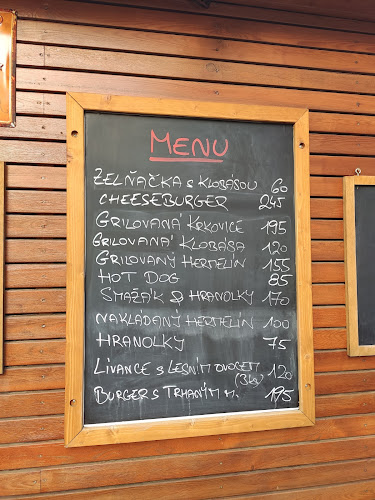 MENU
ZELŇAČKA S KLOBÁSOU 60
CHEESEBURGER 245
GRILOVANÁ KRKOVICE 195
GRILOVANÁ KLOBÁSA 120
GRILOVANÝ HERMELÍN 155
HOT DOG 85
SMAŽÁK S HRANOLKY 170
NAKLÁDANÝ HERMELÍN 100
HRANOLKY 75
LÍVANCE S LESNÍM OVOCEM 120
(3ks)
BURGER S TRHANÝM M. 195